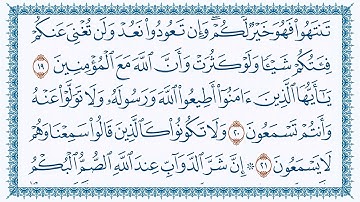 تَنتَهُوا۟ فَهُوَ خَيْرٌ لَّكُمْ ۖ وَإِن تَعُودُوا۟ نَعُدْ وَلَن تُغْنِىَ عَنكُمْ
فِئَتُكُمْ شَيْـًٔا وَلَوْ كَثُرَتْ وَأَنَّ ٱللَّهَ مَعَ ٱلْمُؤْمِنِينَ ١٩
يَـٰٓأَيُّهَا ٱلَّذِينَ ءَامَنُوٓا۟ أَطِيعُوا۟ ٱللَّهَ وَرَسُولَهُۥ وَلَا تَوَلَّوْا۟ عَنْهُ
وَأَنتُمْ تَسْمَعُونَ ٢٠ وَلَا تَكُونُوا۟ كَٱلَّذِينَ قَالُوا۟ سَمِعْنَا وَهُمْ
لَا يَسْمَعُونَ ٢١ ۞ إِنَّ شَرَّ ٱلدَّوَآبِّ عِندَ ٱللَّهِ ٱلصُّمُّ ٱلْبُكْمُ